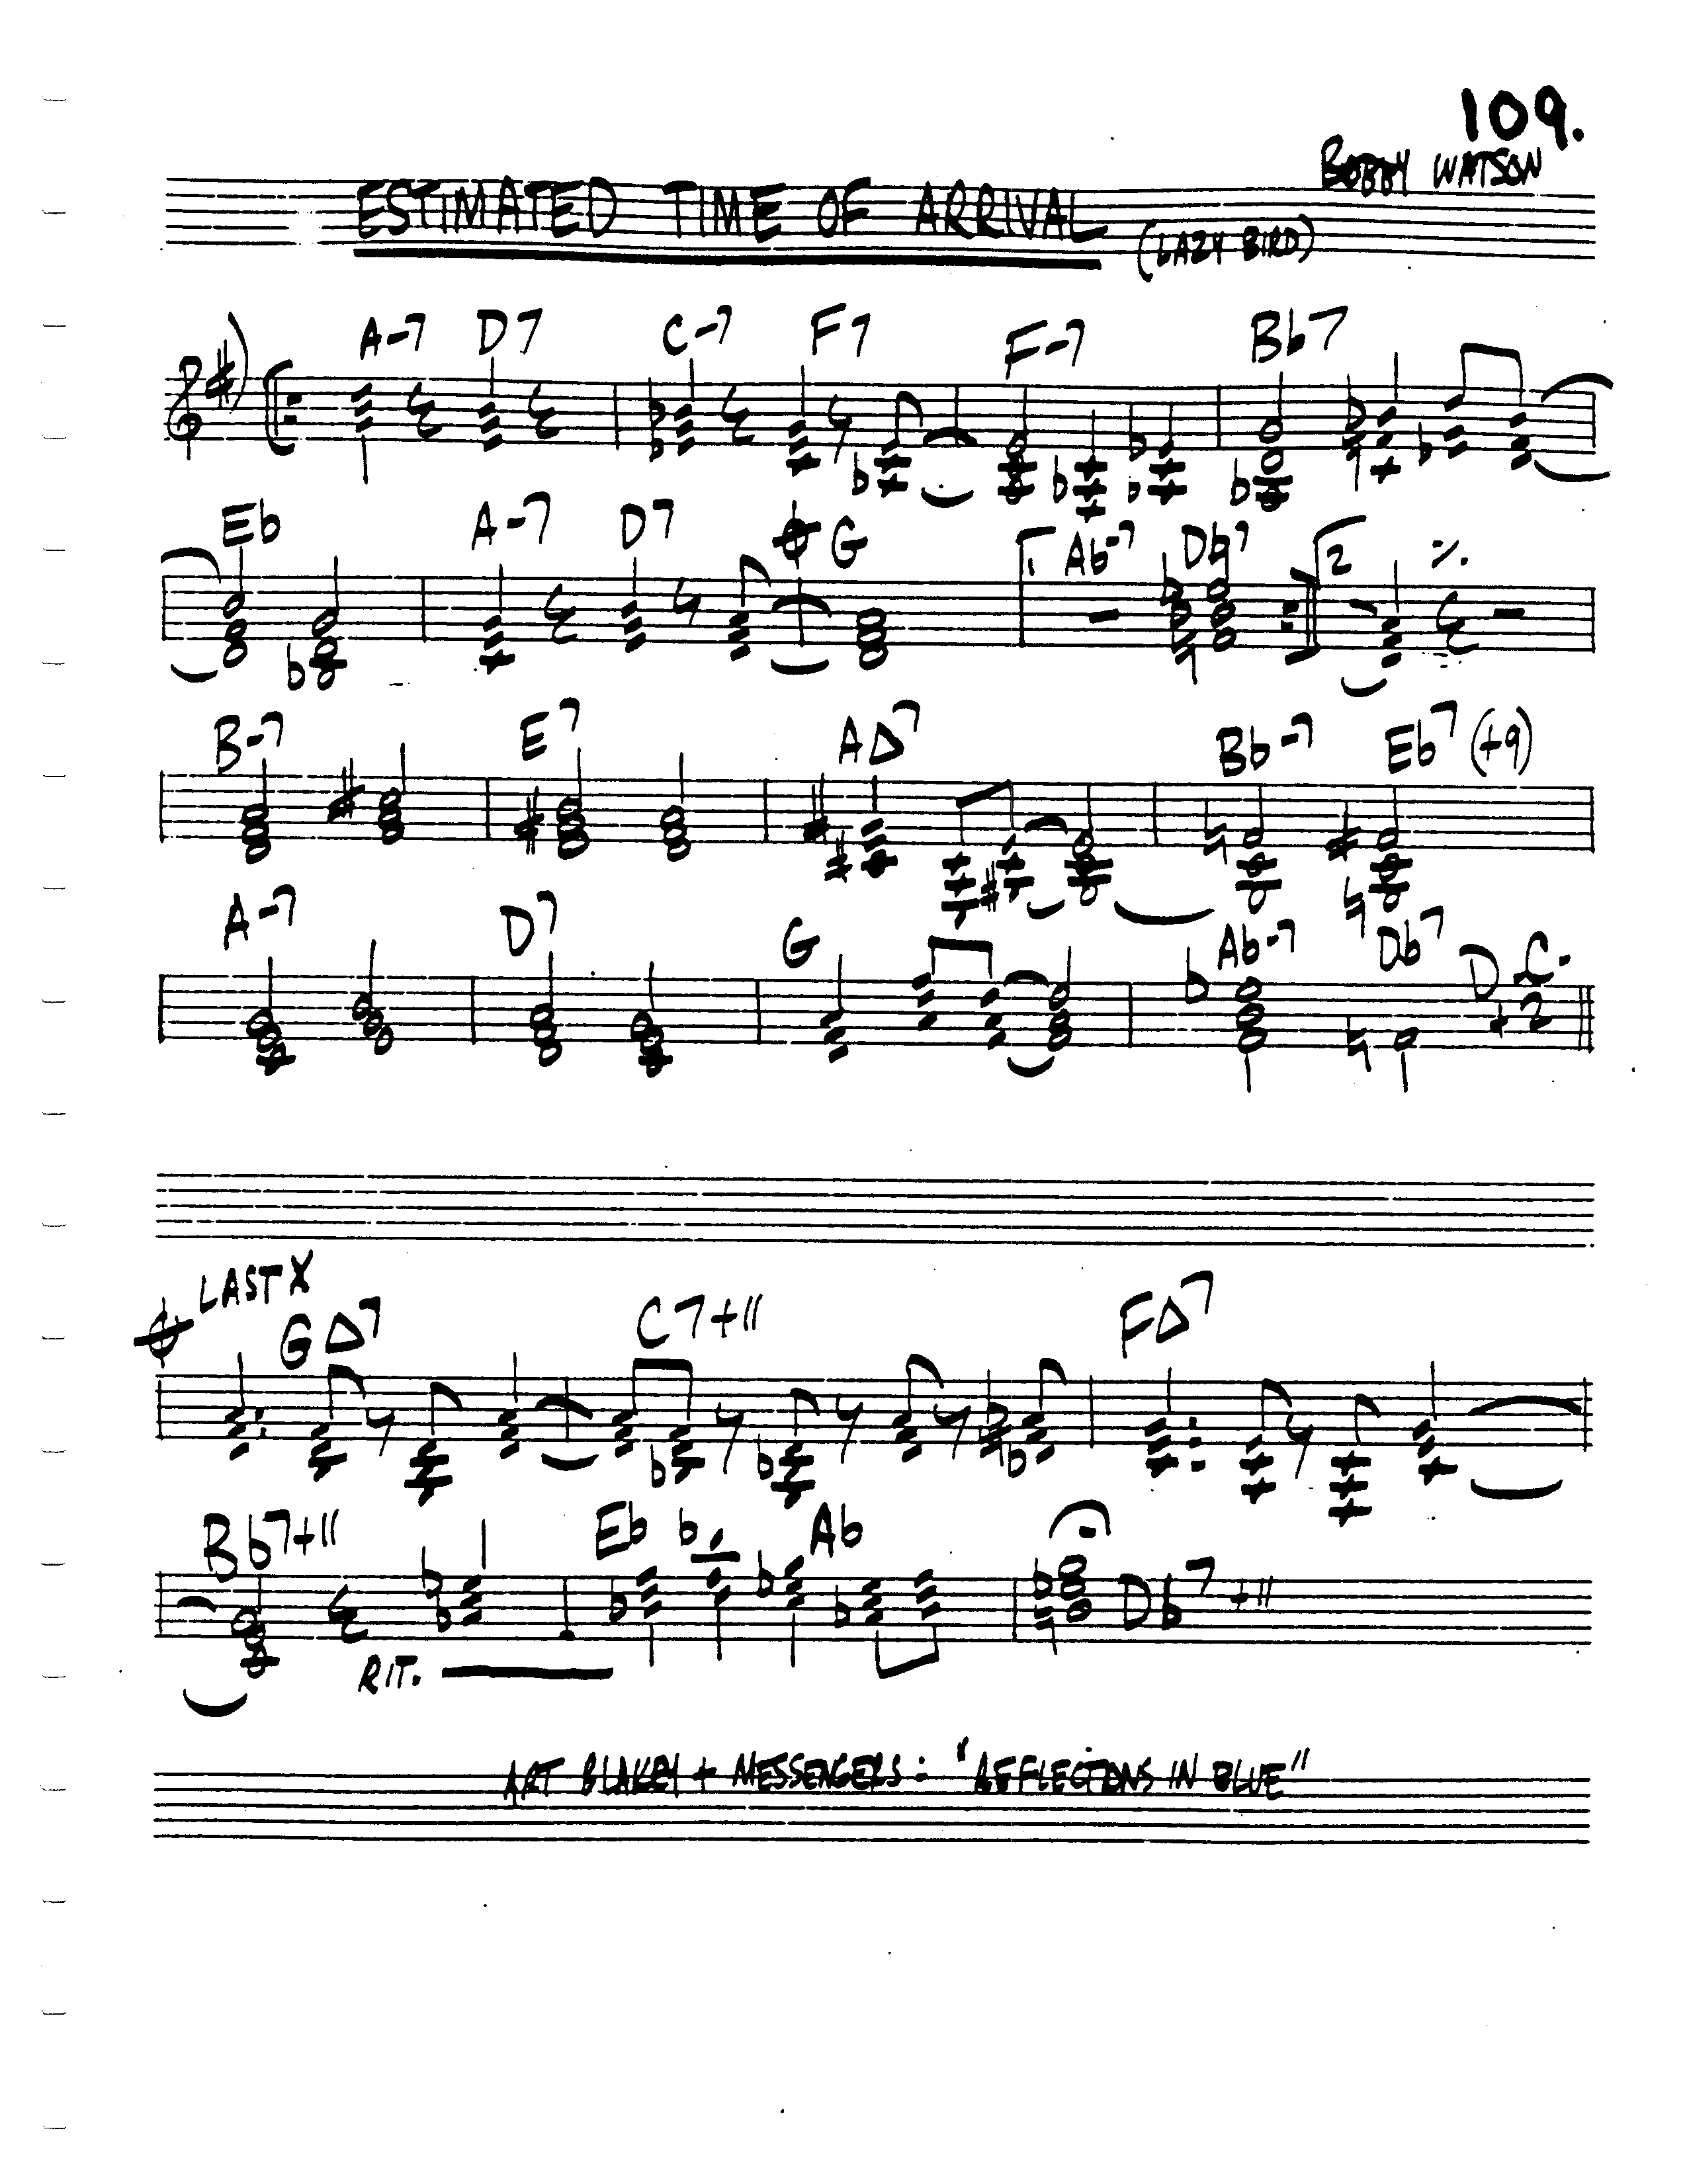 109.
BOBBY WATSON
ESTIMATED TIME OF ARRIVAL (LAZY BIRD)
A-7 D7 C-7 F7 F-7 Bb7
Eb A-7 D7 G 1. Ab-7 Db7 2
B-7 E7 A△7 Bb-7 Eb7 (+9)
A-7 D7 G Ab-7 Db7 D.C.
+2
LAST X
G△7 C7+11 F△7
Bb7+11 Eb Ab Db7+11
RIT.
ART BLAKEY + MESSENGERS: "REFLECTIONS IN BLUE"